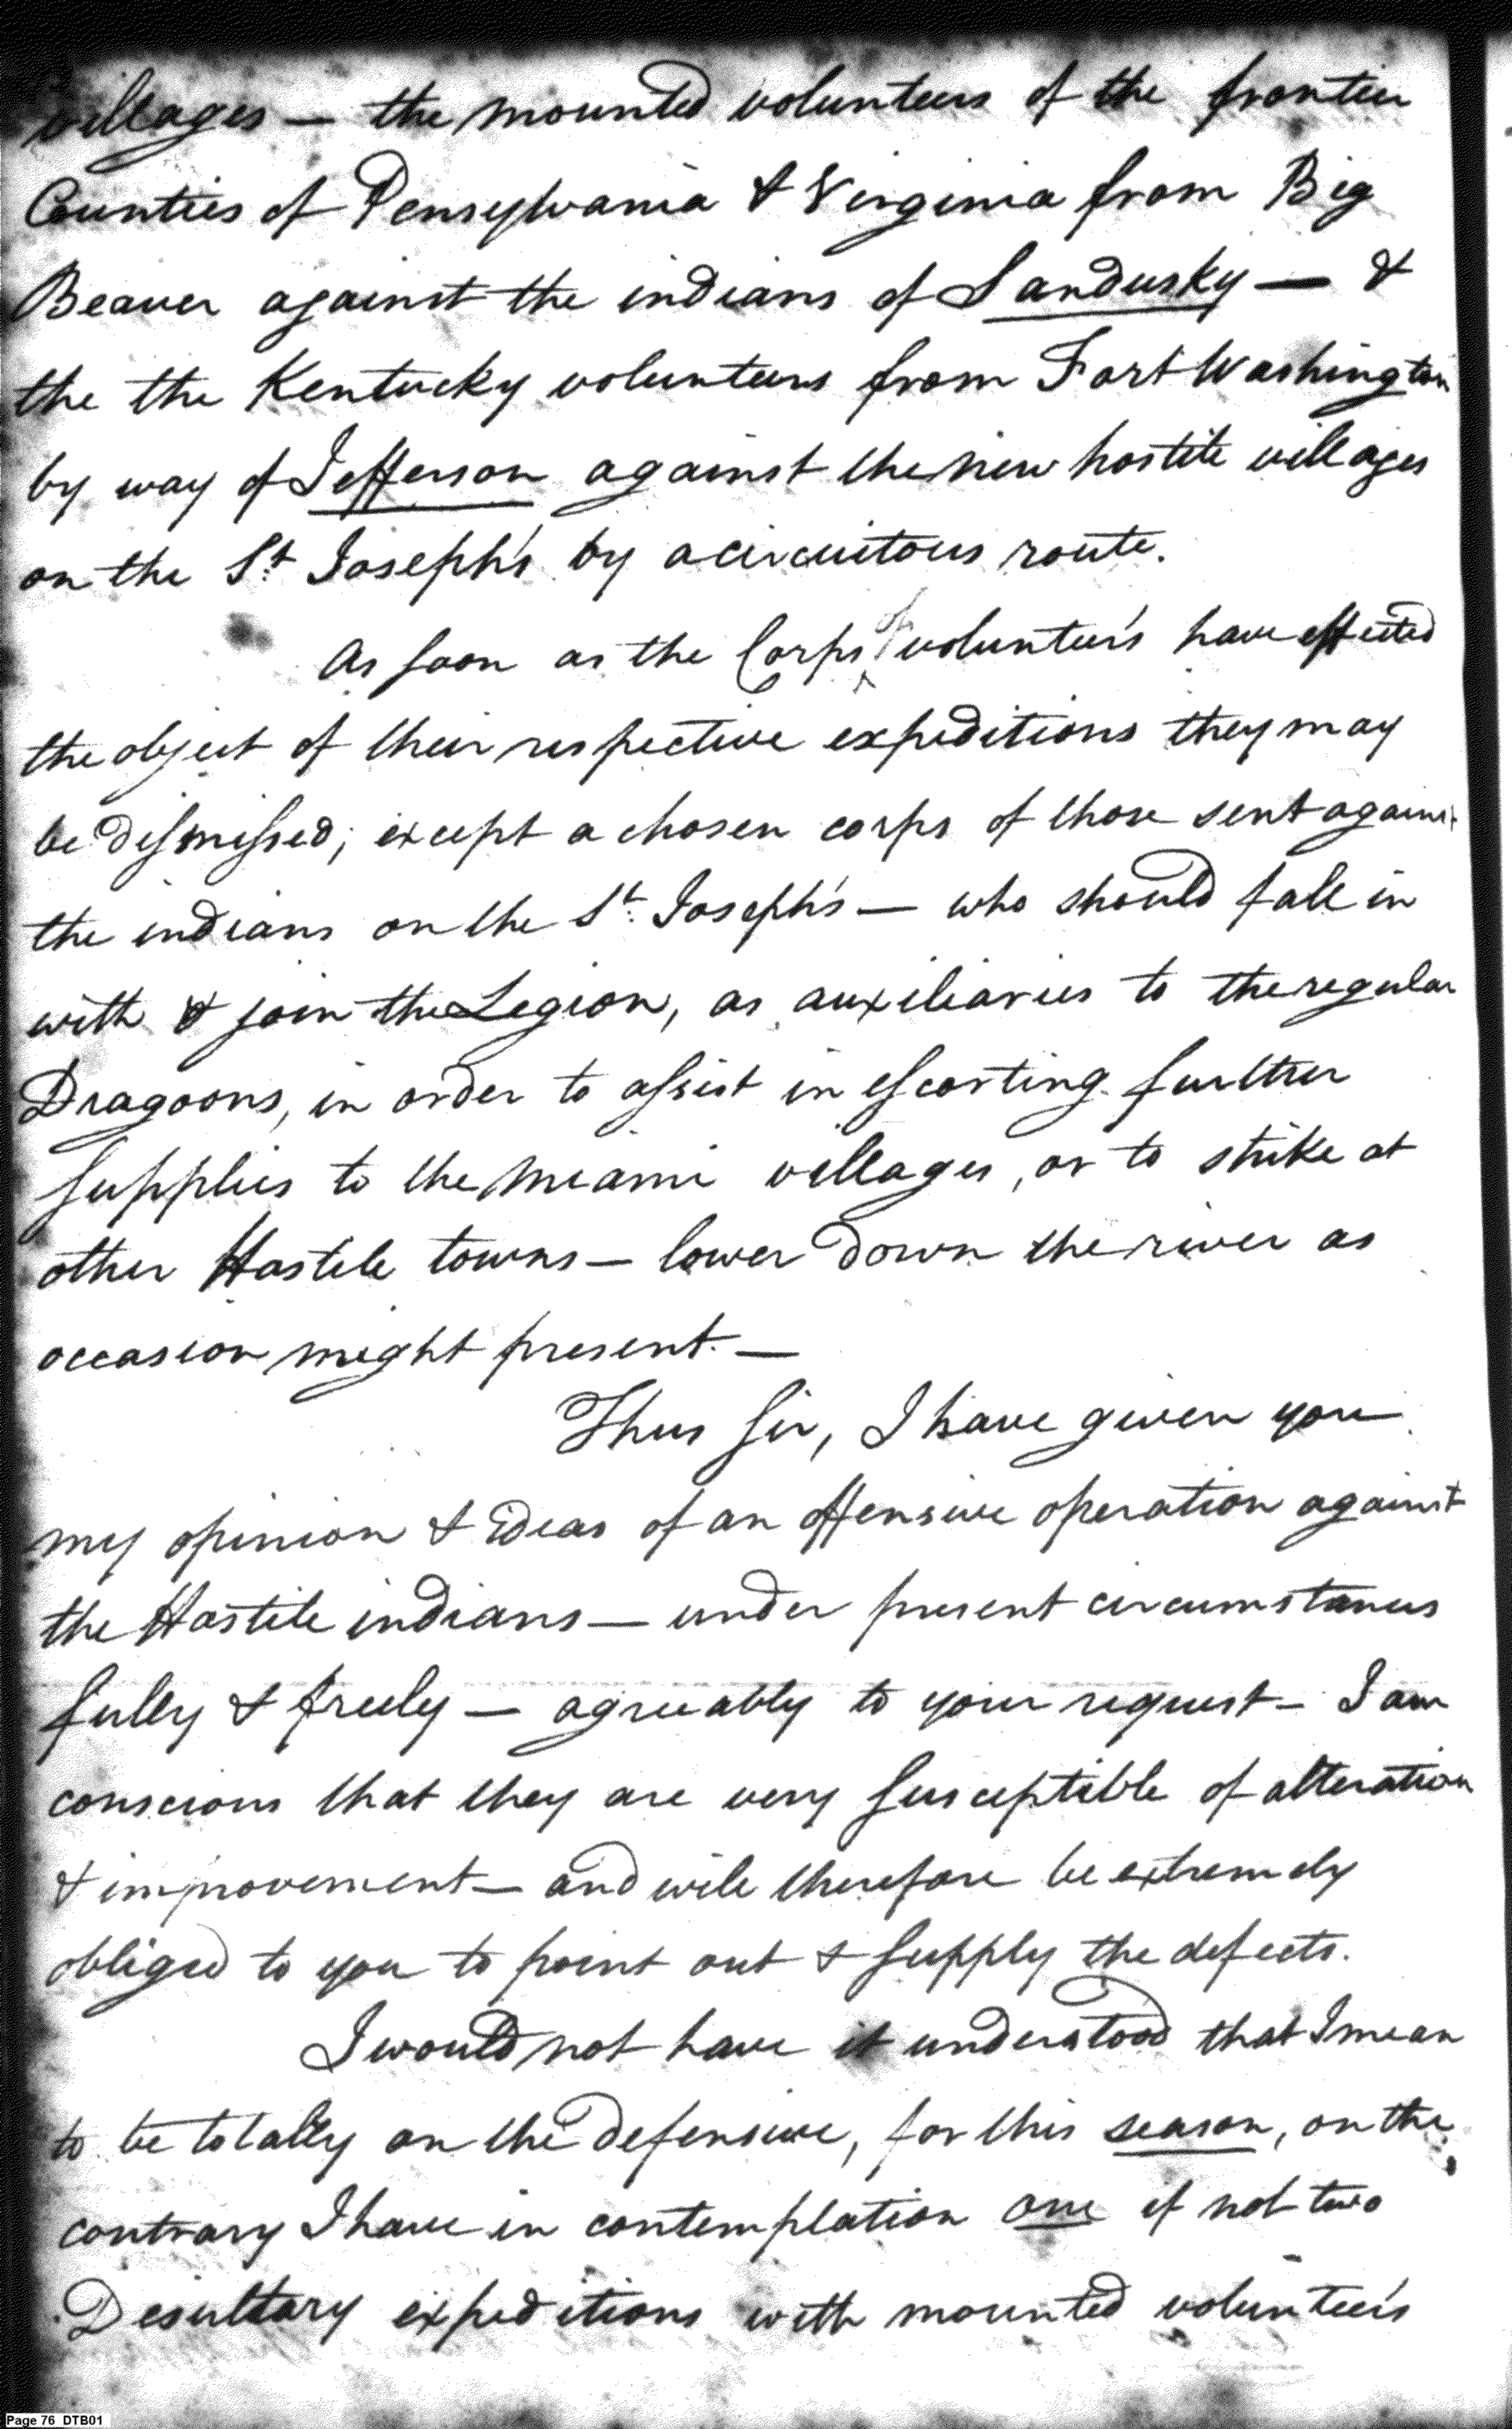 villages — the mounted volunteers of the frontier
Counties of Pensylvania & Virginia from Big
Beaver against the indians of Sandusky — &
the the Kentucky volunteers from Fort Washington
by way of Jefferson against the new hostile villages
on the St. Joseph's by a circuitous route.
As soon as the Corps of volunteers have effected
the object of their respective expeditions they may
be dismissed; except a chosen corps of those sent against
the indians on the St. Joseph's — who should fall in
with & join the Legion, as auxiliaries to the regular
Dragoons, in order to assist in escorting further
supplies to the Miami villages, or to strike at
other Hostile towns — lower down the river as
occasion might present. —
Thus Sir, I have given you
my opinion & ideas of an offensive operation against
the Hostile indians — under present circumstances
fully & freely — agreeably to your request — I am
conscious that they are very susceptible of alteration
& improvement — and will therefore be extremely
obliged to you to point out & supply the defects.
I would not have it understood that I mean
to be totally on the defensive, for this season, on the
contrary I have in contemplation one if not two
Desultary expeditions with mounted volunteers
Page 76 DTB01